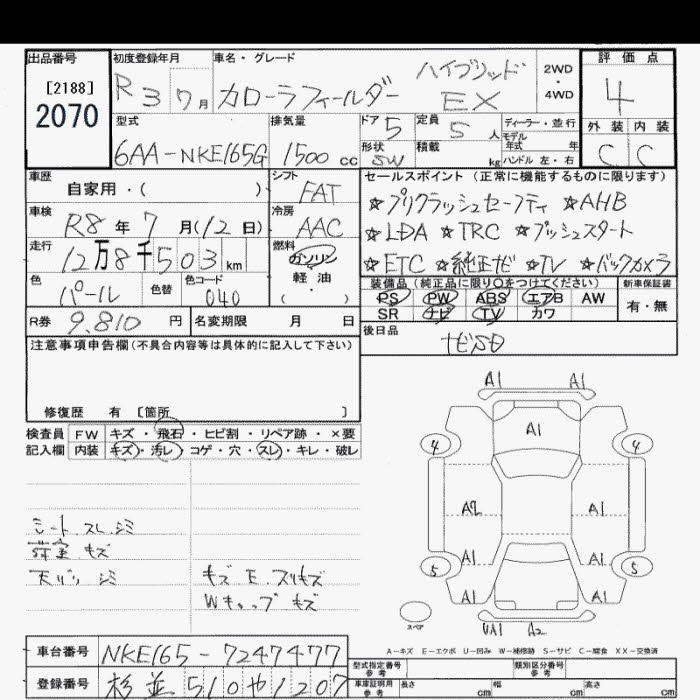 出品番号 初度登録年月 車名・グレード 評価点
[2188]
2070
R3 7月 カローラフィールダー ハイブリッド EX 2WD・4WD 4
型式 排気量 ドア 5 定員 5人 ディーラー・並行 外装 内装
6AA-NKE165G 1500cc 形状 SW 積載 kg モデル年式 年 ハンドル 左・右 C C
車歴 シフト セールスポイント(正常に機能するものに限ります)
自家用・( ) FAT ☆プリクラッシュセーフティ ☆AHB
車検 R8年7月(12日) 冷房 AAC ☆LDA ☆TRC ☆プッシュスタート
走行 12万8千503km 燃料 ガソリン 軽・油 ・( ) ☆ETC ☆純正ナビ ☆TV ☆バックカメラ
色 パール 色替 色コード 040 装備品(純正品に限り○をつけてください) 新車保証書
PS PW ABS エアB AW 有・無
SR ナビ TV カワ
R券 9,810円 名変期限 月 日 後日品
ナビSD
注意事項申告欄(不具合内容等は具体的に記入して下さい)
修復歴 有 [箇所 ]
検査員 FW キズ・飛石・ヒビ割・リペア跡・×要
記入欄 内装 キズ・汚レ・コゲ・穴・スレ・キレ・破レ
A1 A1
A1
4 4
A2 A1
A1 A1
5 5
A1 A1
UA1 A2
スペア
シート スレ シミ
荷室 キズ
天バリ シミ キズ E.スリキズ
Wキャップ キズ
A-キズ E-エクボ U-凹み W-補修跡 S-サビ C-腐食 XX-交換済
車台番号 NKE165-7247477
登録番号 杉並510や1207
型式指定番号 参考 類別区分番号 参考
車庫証明用 参考 長さ cm 幅 cm 高さ cm